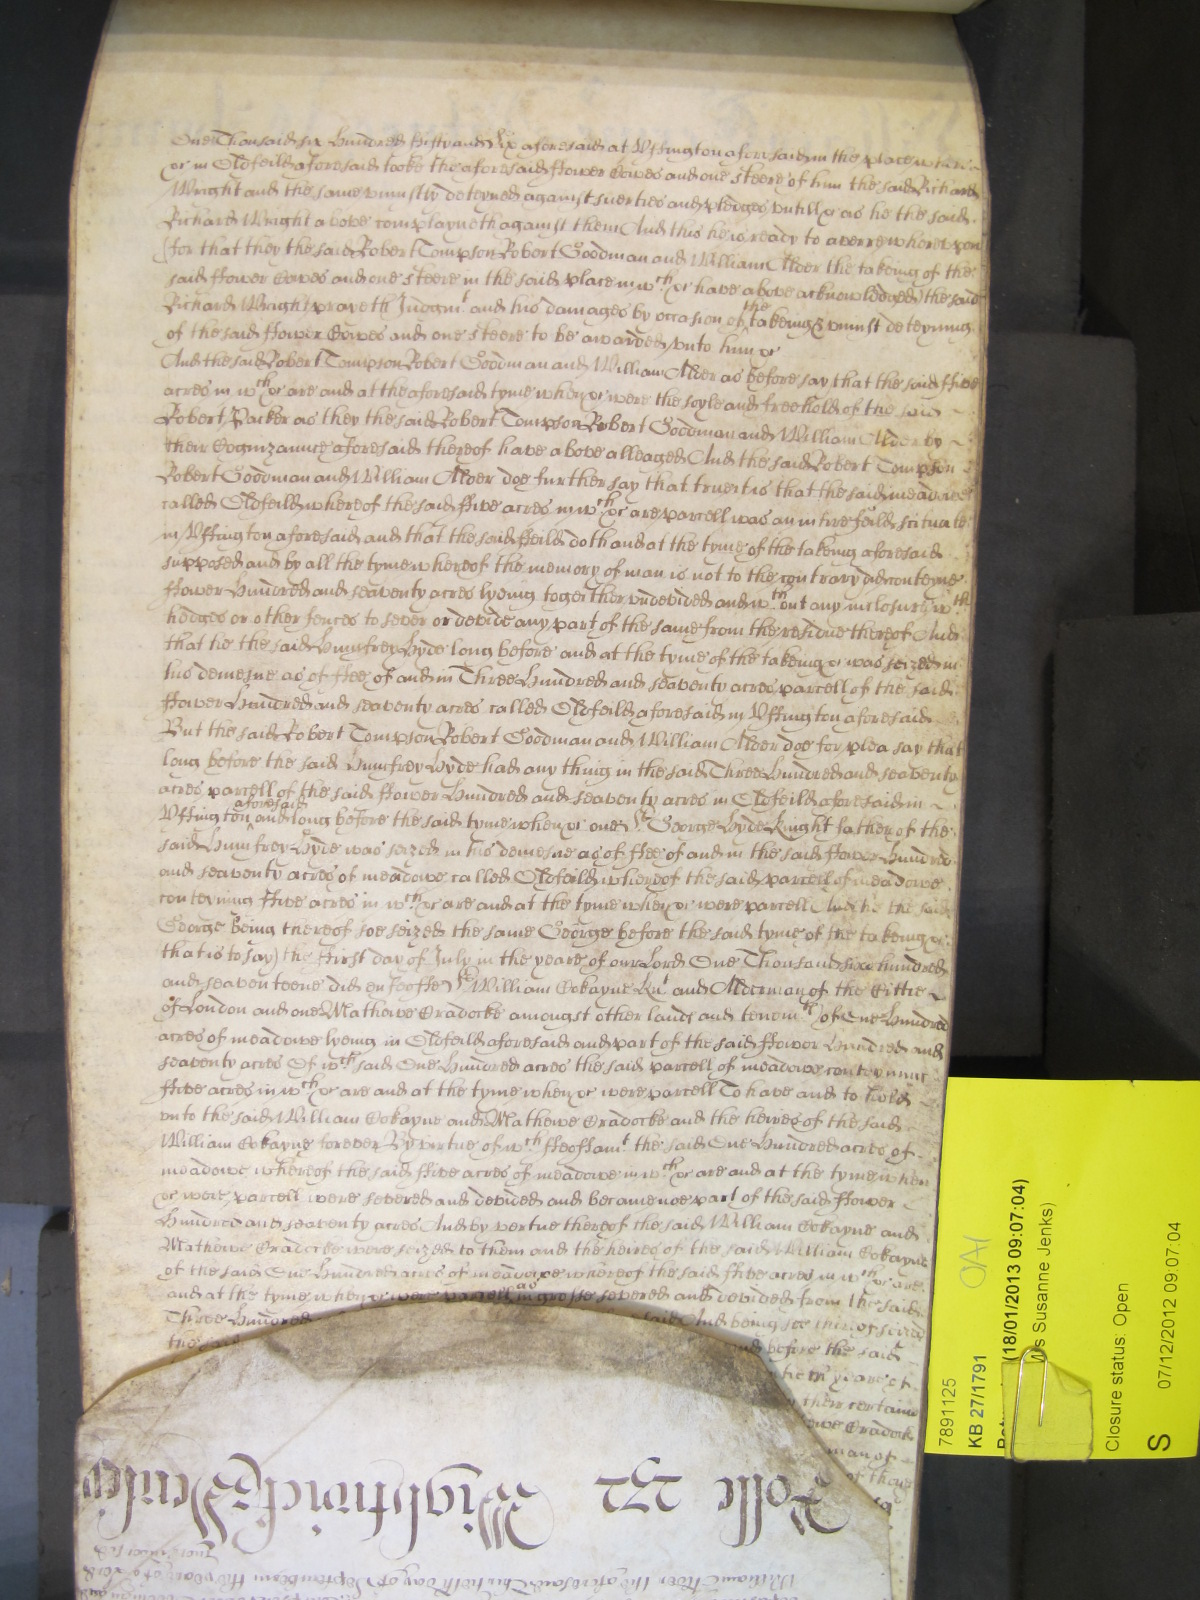 One Thousand six Hundred Fifty and Six aforesaid at Uffington aforesaid in the place where
&c in Oldfeild aforesaid tooke the aforesaid ffower Cowes and one steere of him the said Richard
Wright and the same uniustly deteyned against suerties and pledges untill &c as he the said
Richard Wright above complayneth against them And this he is ready to averre whereupon
(for that they the said Robert Tompson Robert Goodman and William Alder the takeing of the
said ffower Cowes and one steere in the said place in wch &c have above acknowledged) the said
Richard Wright prayeth Judgmt and his damages by occasion of the takeing & uniust deteyning
of the said ffower Cowes and one steere to be awarded unto him &c
And the said Robert Tompson Robert Goodman and William Alder as before say that the said ffive
acres in wch &c are and at the aforesaid tyme when &c were the soyle and freehold of the said
Robert Packer as they the said Robert Tompson Robert Goodman and William Alder by
their Cognizannce aforesaid thereof have above alleaged And the said Robert Tompson
Robert Goodman and William Alder doe further say that true it is that the said meadowe
called Oldfeild whereof the said ffive acres in wch &c are parcell was an intire feild scituate
in Uffington aforesaid and that the said ffeild doth and at the tyme of the takeing aforesaid
supposed and by all the tyme whereof the memory of man is not to the contrary did conteyne
ffower Hundred and seaventy acres lyeing together undevided and wthout any inclosure wth
hedges or other fences to sever or devide any part of the same from the residue thereof And
that he the said Humfrey Hyde long before and at the tyme of the takeing &c was seized in
his demesne as of ffee of and in Three Hundred and seaventy acres parcell of the said
ffower Hundred and seaventy acres called Oldfeild aforesaid in Uffington aforesaid
But the said Robert Tompson Robert Goodman and William Alder doe for plea say that
long before the said Humfrey Hyde had any thing in the said Three Hundred and seaventy
acres parcell of the said ffower Hundred and seaventy acres in Oldfeild aforesaid in
Uffington aforesaid and long before the said tyme when &c one Sr George Hyde Knight father of the
said Humfrey Hyde was seized in his demesne as of ffee of and in the said ffower Hundred
and seaventy acres of meadowe called Oldfeild whereof the said parcell of meadowe
conteyning ffive acres in wch &c are and at the tyme when &c were parcell And he the said
George being thereof soe seized the same George before the said tyme of the takeing &c
that is to say) the first day of July in the yeare of our Lord One Thousand sixe hundred
and seaventeene did enfeoffe Sr William Cokayne Knt and Alderman of the Cittie
of London and one Mathewe Cradocke amongst other lands and tenemts) of One Hundred
acres of meadowe lyeing in Oldfeild aforesaid and part of the said ffower Hundred and
seaventy acres Of wch said One Hundred acres the said parcell of meadowe conteyning
ffive acres in wch &c are and at the tyme when &c were parcell To have and to hold
unto the said William Cokayne and Mathewe Cradocke and the heires of the said
William Cokayne forever By vertue of wch ffeoffamt the said One Hundred acres of
meadowe whereof the said ffive acres of meadowe in wch &c are and at the tyme when
&c were parcell were severed and devided and became noe part of the said ffower
Hundred and seaventy acres And by vertue thereof the said William Cokayne and
Mathewe Cradocke were seized to them and the heires of the said William Cokayne
of the said One Hundred acres of meadowe whereof the said ffive acres in wch &c are
and at the tyme when &c were parcell as in grosse severed and devided from the said
Three Hundred said And being soe thereof seized
the said before the said
yeare of
their certaine
Cradock
man of
of them
Rolle 232 Wightwick
William Alder the aforesaid Thirtieth day of September in the yeare of our Lord
7891125
KB 27/1791
(18/01/2013 09:07:04)
Susanne Jenks)
Closure status: Open
S 07/12/2012 09:07:04